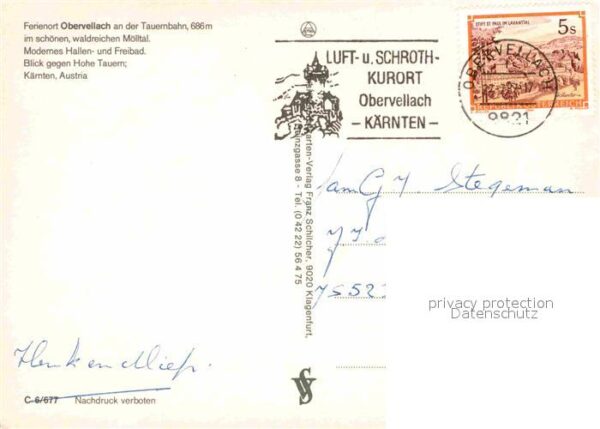 Ferienort Obervellach an der Tauernbahn, 686m
im schönen, waldreichen Mölltal.
Modernes Hallen- und Freibad.
Blick gegen Hohe Tauern;
Kärnten, Austria
LUFT- u. SCHROTH-
KURORT
Obervellach
- KÄRNTEN -
STIFT ST. PAUL IM LAVANTTAL
5s
REPUBLIK ÖSTERREICH
OBERVELLACH
9821
arten-Verlag Franz Schilcher, 9020 Klagenfurt,
nzgasse 8 - Tel. (0 42 22) 56 4 75
Fam G J. Stegeman
7552
privacy protection
Datenschutz
Henk en Miep.
C 6/677 Nachdruck verboten